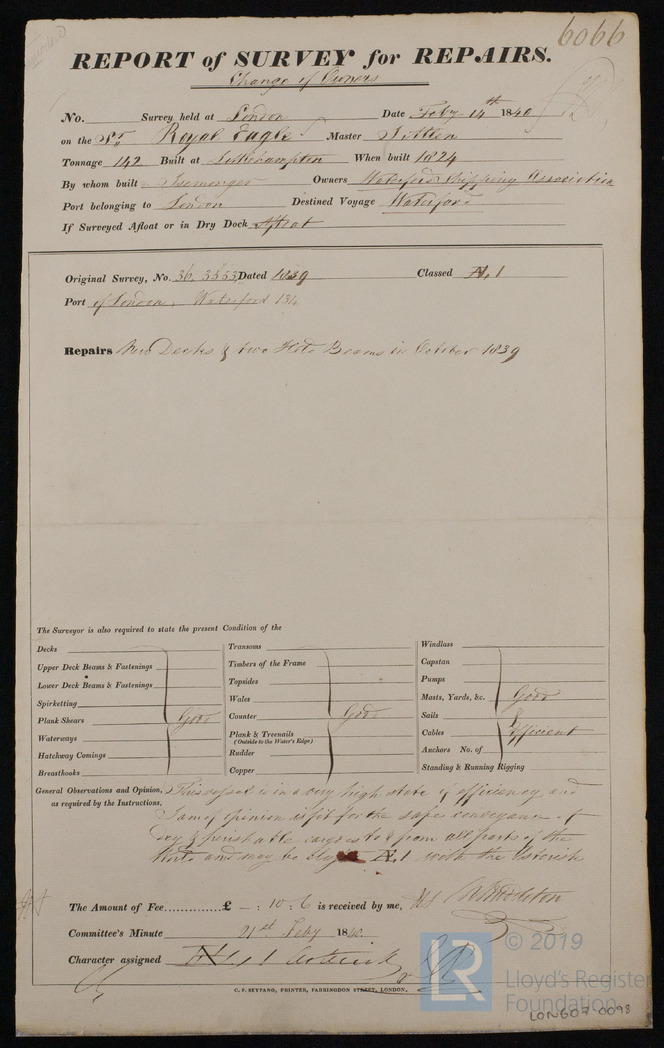 6066
REPORT of SURVEY for REPAIRS.
Change of Owners
No. Survey held at London Date Feby 14th 1840
on the Sr. Royal Eagle Master
Tonnage 142 Built at Littlehampton When built 1824
By whom built Isemonger Owners Waterford Shipping Association
Port belonging to London Destined Voyage Waterford
If Surveyed Afloat or in Dry Dock Afloat
Original Survey, No. 36. 3553 Dated 1839 Classed Æ. 1
Port of London. Waterford 134
Repairs New Decks & two Hold Beams in October 1839
The Surveyor is also required to state the present Condition of the
Decks
Upper Deck Beams & Fastenings
Lower Deck Beams & Fastenings
Spirketting
Plank Shears
Waterways
Hatchway Comings
Breasthooks
Good
Transoms
Timbers of the Frame
Topsides
Wales
Counter
Plank & Treenails
(Outside to the Water's Edge)
Rudder
Copper
Good
Windlass
Capstan
Pumps
Masts, Yards, &c.
Sails
Cables
Anchors No. of
Standing & Running Rigging
Good
&
Efficient
General Observations and Opinion, This vessel is in a very high state of efficiency and
as required by the Instructions. I am of opinion is fit for the safe conveyance of
dry & perishable cargoes to & from all parts of the
World and may be Æ. 1 with the Asterisk
The Amount of Fee..............£ — : 10 : 6 is received by me, Middleton
Committee's Minute 21st Feby 1840
Character assigned Æ 1 Asterisk
C. F. SEYFANG, PRINTER, FARRINGDON STREET, LONDON.
LR © 2019
Lloyd's Register
Foundation
LON607-0098